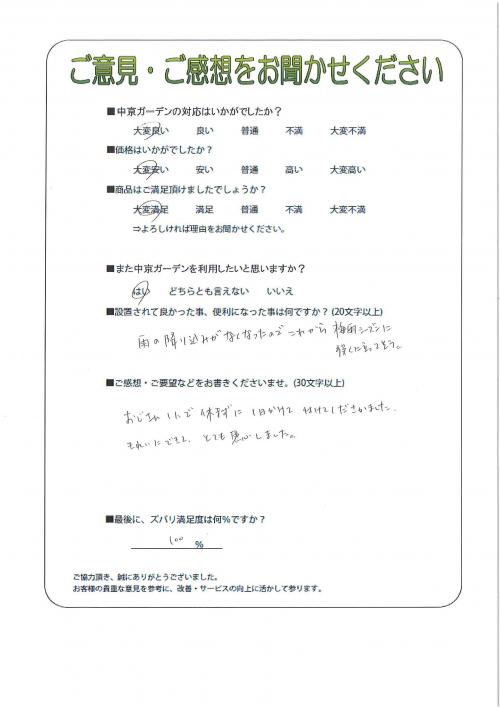 ご意見・ご感想をお聞かせください
■中京ガーデンの対応はいかがでしたか？
大変良い 良い 普通 不満 大変不満
■価格はいかがでしたか？
大変安い 安い 普通 高い 大変高い
■商品はご満足頂けましたでしょうか？
大変満足 満足 普通 不満 大変不満
⇒よろしければ理由をお聞かせください。
■また中京ガーデンを利用したいと思いますか？
はい どちらとも言えない いいえ
■設置されて良かった事、便利になった事は何ですか？(20文字以上)
雨の降り込みがなくなったのでこれから梅雨シーズンに
■ご感想・ご要望などをお書きくださいませ。(30文字以上)
おじさん1人で休まずに1日かけて付けてくださいました。
きれいにできて、とても感心しました。
■最後に、ズバリ満足度は何％ですか？
100 ％
ご協力頂き、誠にありがとうございました。
お客様の貴重な意見を参考に、改善・サービスの向上に活かして参ります。